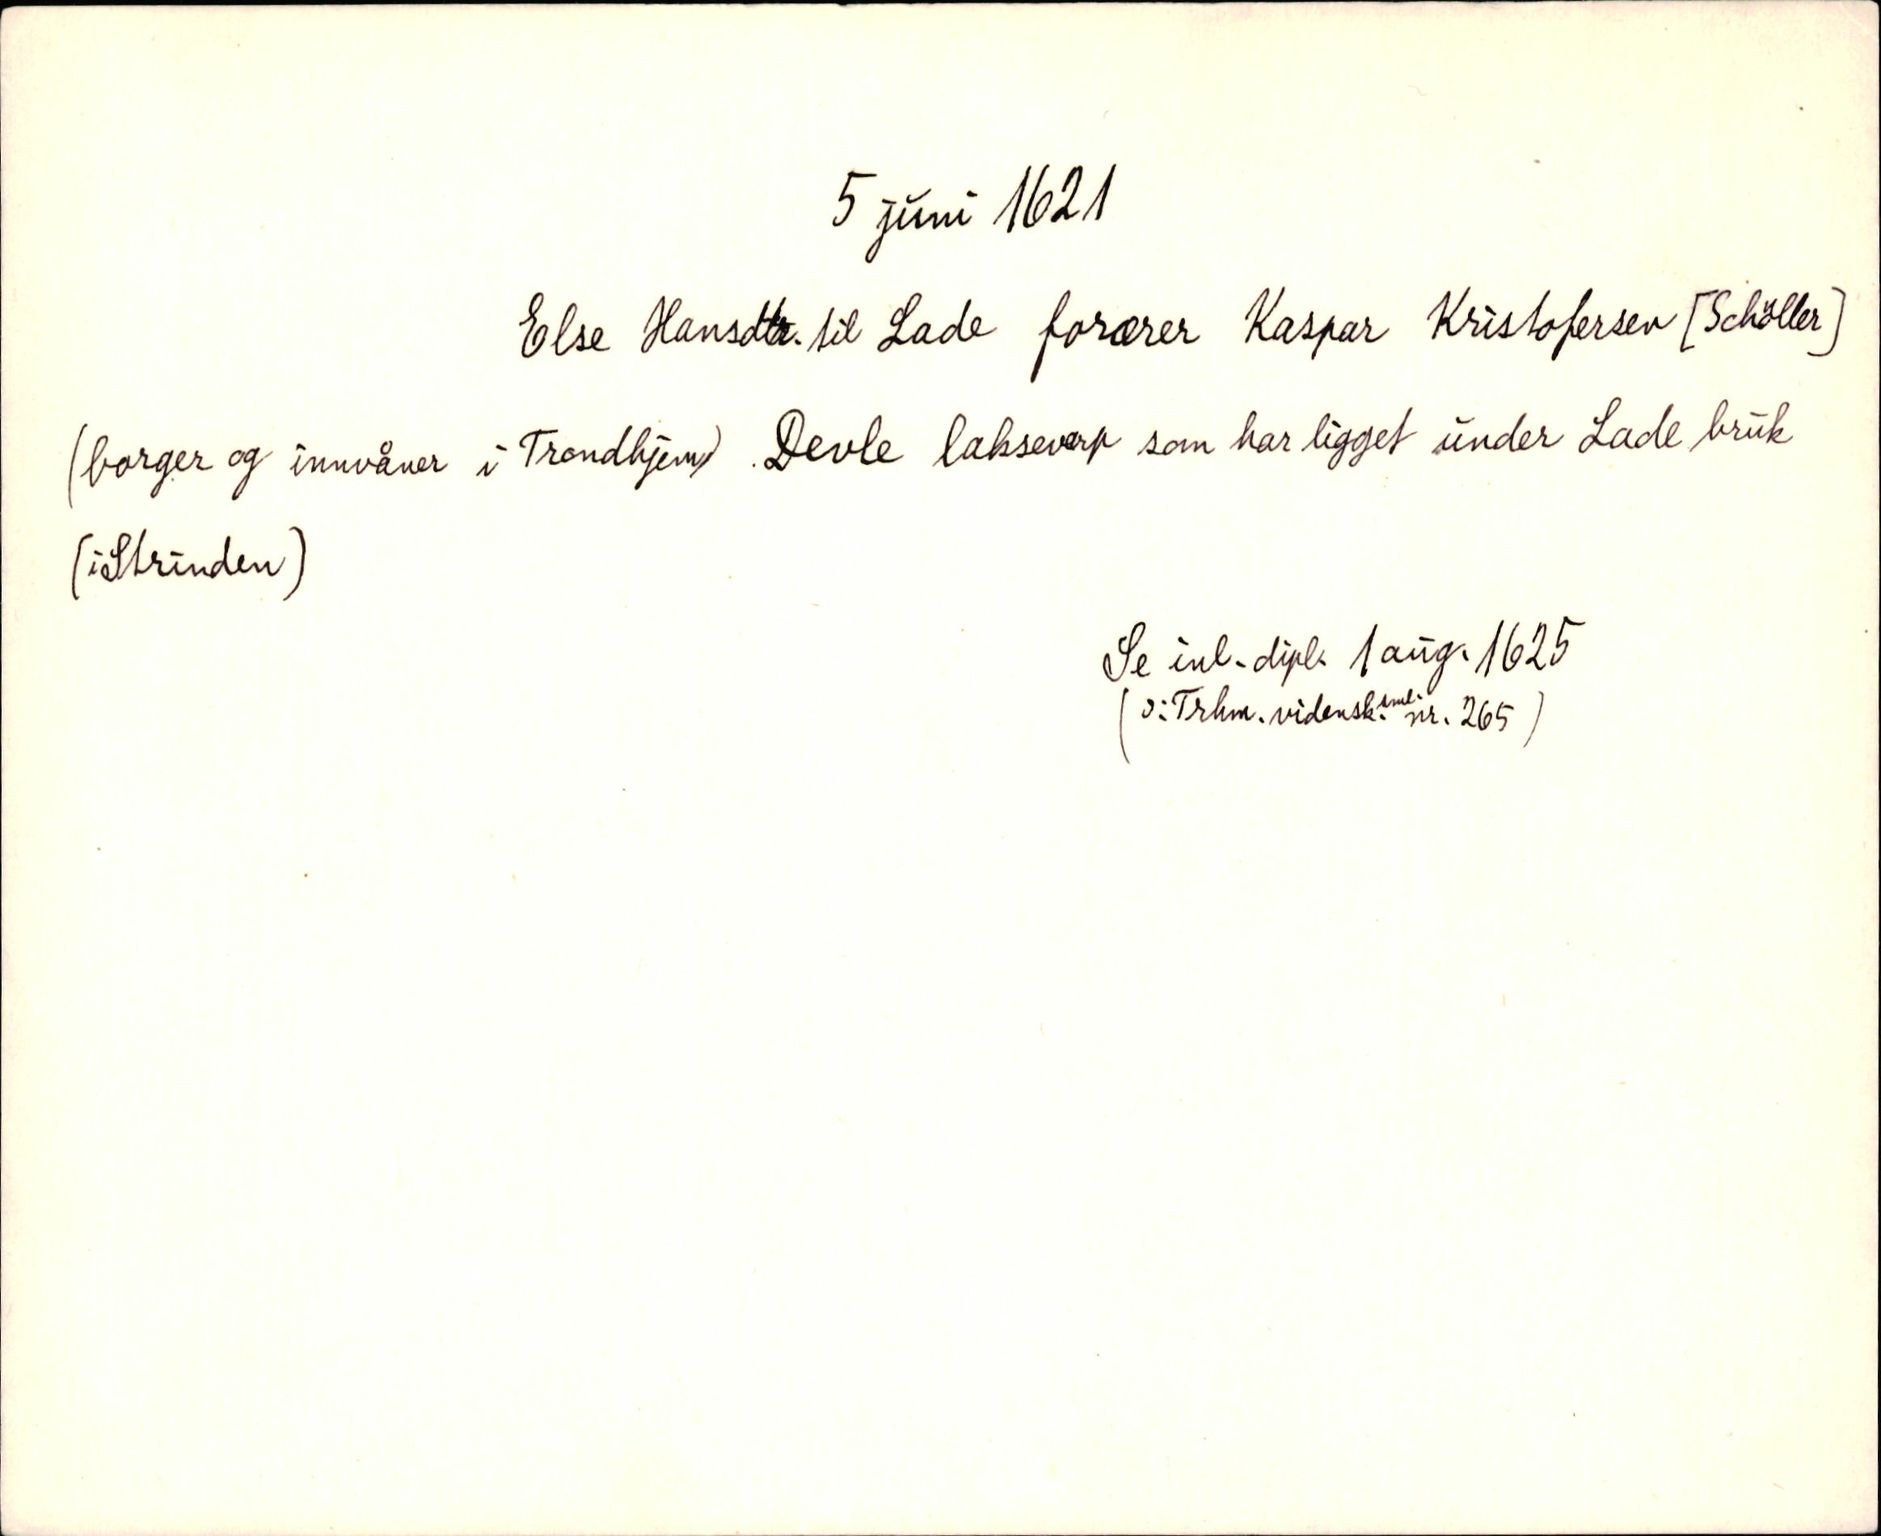 5 juni 1621
Else Hansdtr. til Lade forærer Kaspar Kristofersen [Schöller]
(borger og innvåner i Trondhjem). Devle laksevarp som har ligget under Lade bruk
(i Strinden)
Se inl. dipl. 1 aug. 1625
(ɔ: Trhm. vidensk. sml. nr. 265)